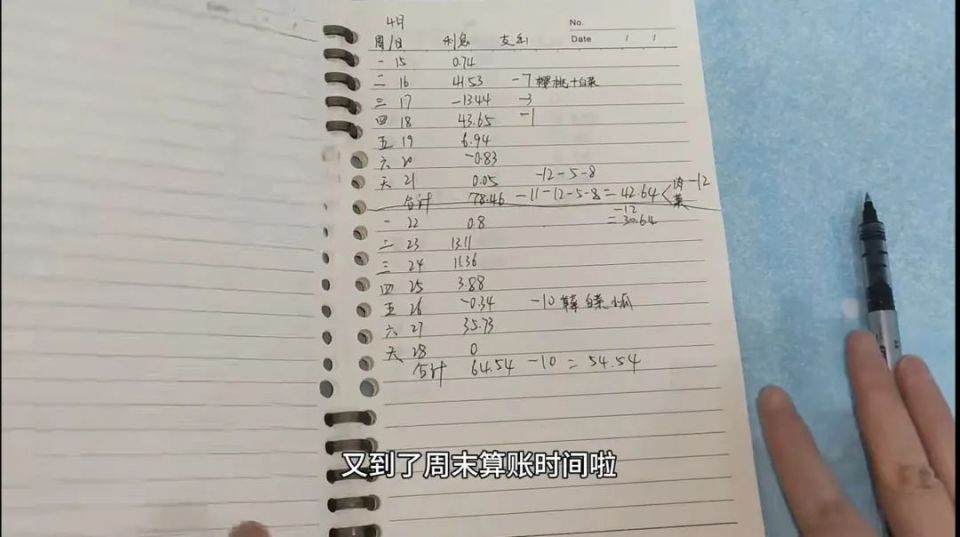 No.
Date / /
4月
周/日 利息 支出
一 15 0.74
二 16 41.53 -7 樱桃+白菜
三 17 -13.44 -3
四 18 43.65 -1
五 19 6.94
六 20 -0.83
天 21 0.05 -12-5-8
合计 78.46 -11-12-5-8=42.64 -12
菜
-12
=30.64
一 22 0.8
二 23 13.11
三 24 11.36
四 25 3.88
五 26 -0.34 -10 白菜
六 27 35.73
天 28 0
合计 64.54 -10 = 54.54
又到了周末算账时间啦